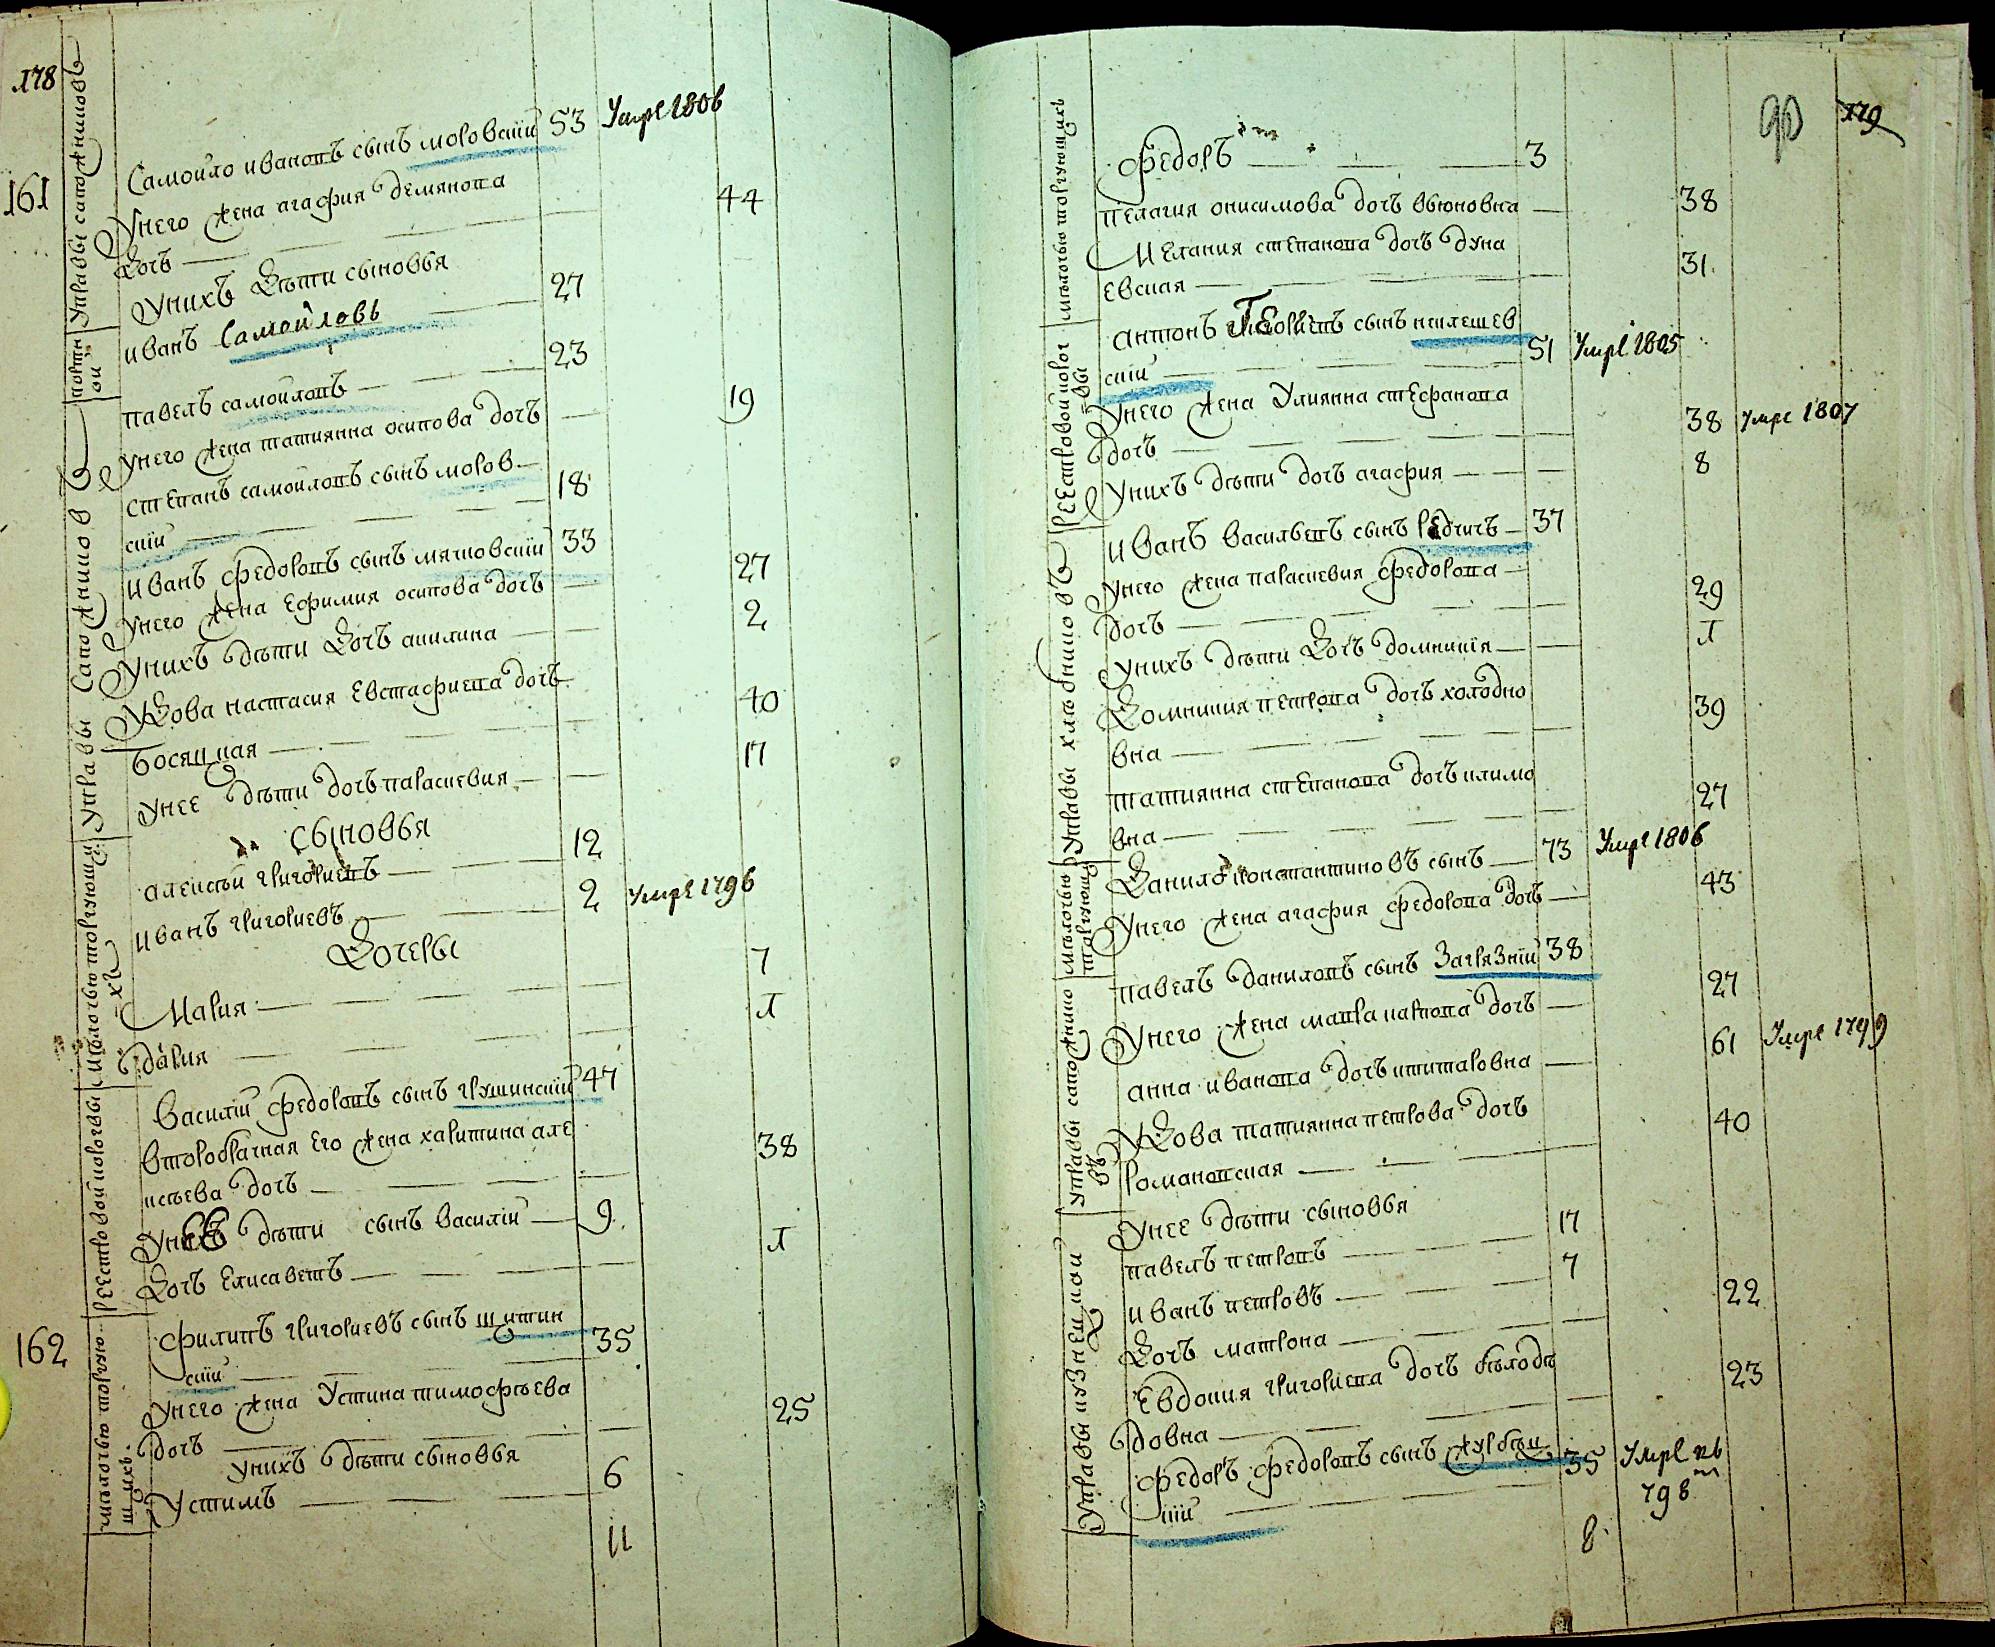 178
161
Управы сапожниковъ
Самойло ивановъ сынъ моровскїй 53 Умре 1806
Унего жена агафия демянова
дочь 44
Унихъ дѣти сыновья
портн
ой
иванъ Самойловъ 27
павелъ самойловъ 23
Унего жена татиянна осипова дочь 19
степанъ самойловъ сынъ моров
скїй 18
Управы Сапожнико въ
Иванъ федоровъ сынъ мятовскїй 33
Унего жена ефимия осипова дочь 27
Унихъ дѣти дочь акилина 2
Удова настасия евстафиева дочь
Босяцкая 40
Унее дѣти дочь параскевия 17
Сыновья
мѣлочью торгующи
хъ
алексѣй григориевъ 12
Иванъ григориевъ 2 Умре 1796
Дочеры
Мария 7
дария 1
реестровой корогвы
Василїй федоровъ сынъ грушинскїй 47
второбрачная его жена харитина але
ксѣева дочь 38
дѣти сынъ василїй 9
Дочь Елисаветъ 1
162
мѣлочью торгую
щихъ
филипъ григориевъ сынъ щитин
скїй 35
Унего жена Устина тимофѣева
дочь 25
унихъ дѣти сыновья
Устимъ 6
11
90 179
мѣлочью торгующихъ
федоръ 3
пелагия онисимова дочь вьюновна 38
Мелания степанова дочь дуна
евская 31
реестровой корог
вы
антонъ сынъ кклешев
скїй 51 Умре 1805
Унего жена Улиянна стефанова
дочь 38 Умре 1807
Унихъ дѣти дочь агафия 8
Управы хлѣбнико въ
Иванъ васильевъ сынъ редчичъ 37
Унего жена параскевия федорова
дочь 29
унихъ дѣти дочь домникїя 1
Домникия петрова дочь холодно
вна 39
татиянна степанова дочь климо
вна 27
мѣлочью
торгующи
Данило константиновъ сынъ 73 Умре 1806
Унего жена агафия федорова дочь 43
управы сапожнико
въ
павелъ даниловъ сынъ Загрязнїй 38
Унего жена мавра карпова дочь 27
анна иванова дочь ититаровна 61 Умре 1799
Удова татиянна петрова дочь
романовская 40
Унее дѣти сыновья
павелъ петровъ 17
иванъ петровъ 7
Дочь матрона 22
Управы кузнецкой
Евдокия григориева дочь бѣлоде
довна 23
федоръ федоровъ сынъ журбѣц
кїй 35 Умре въ
798 м
8